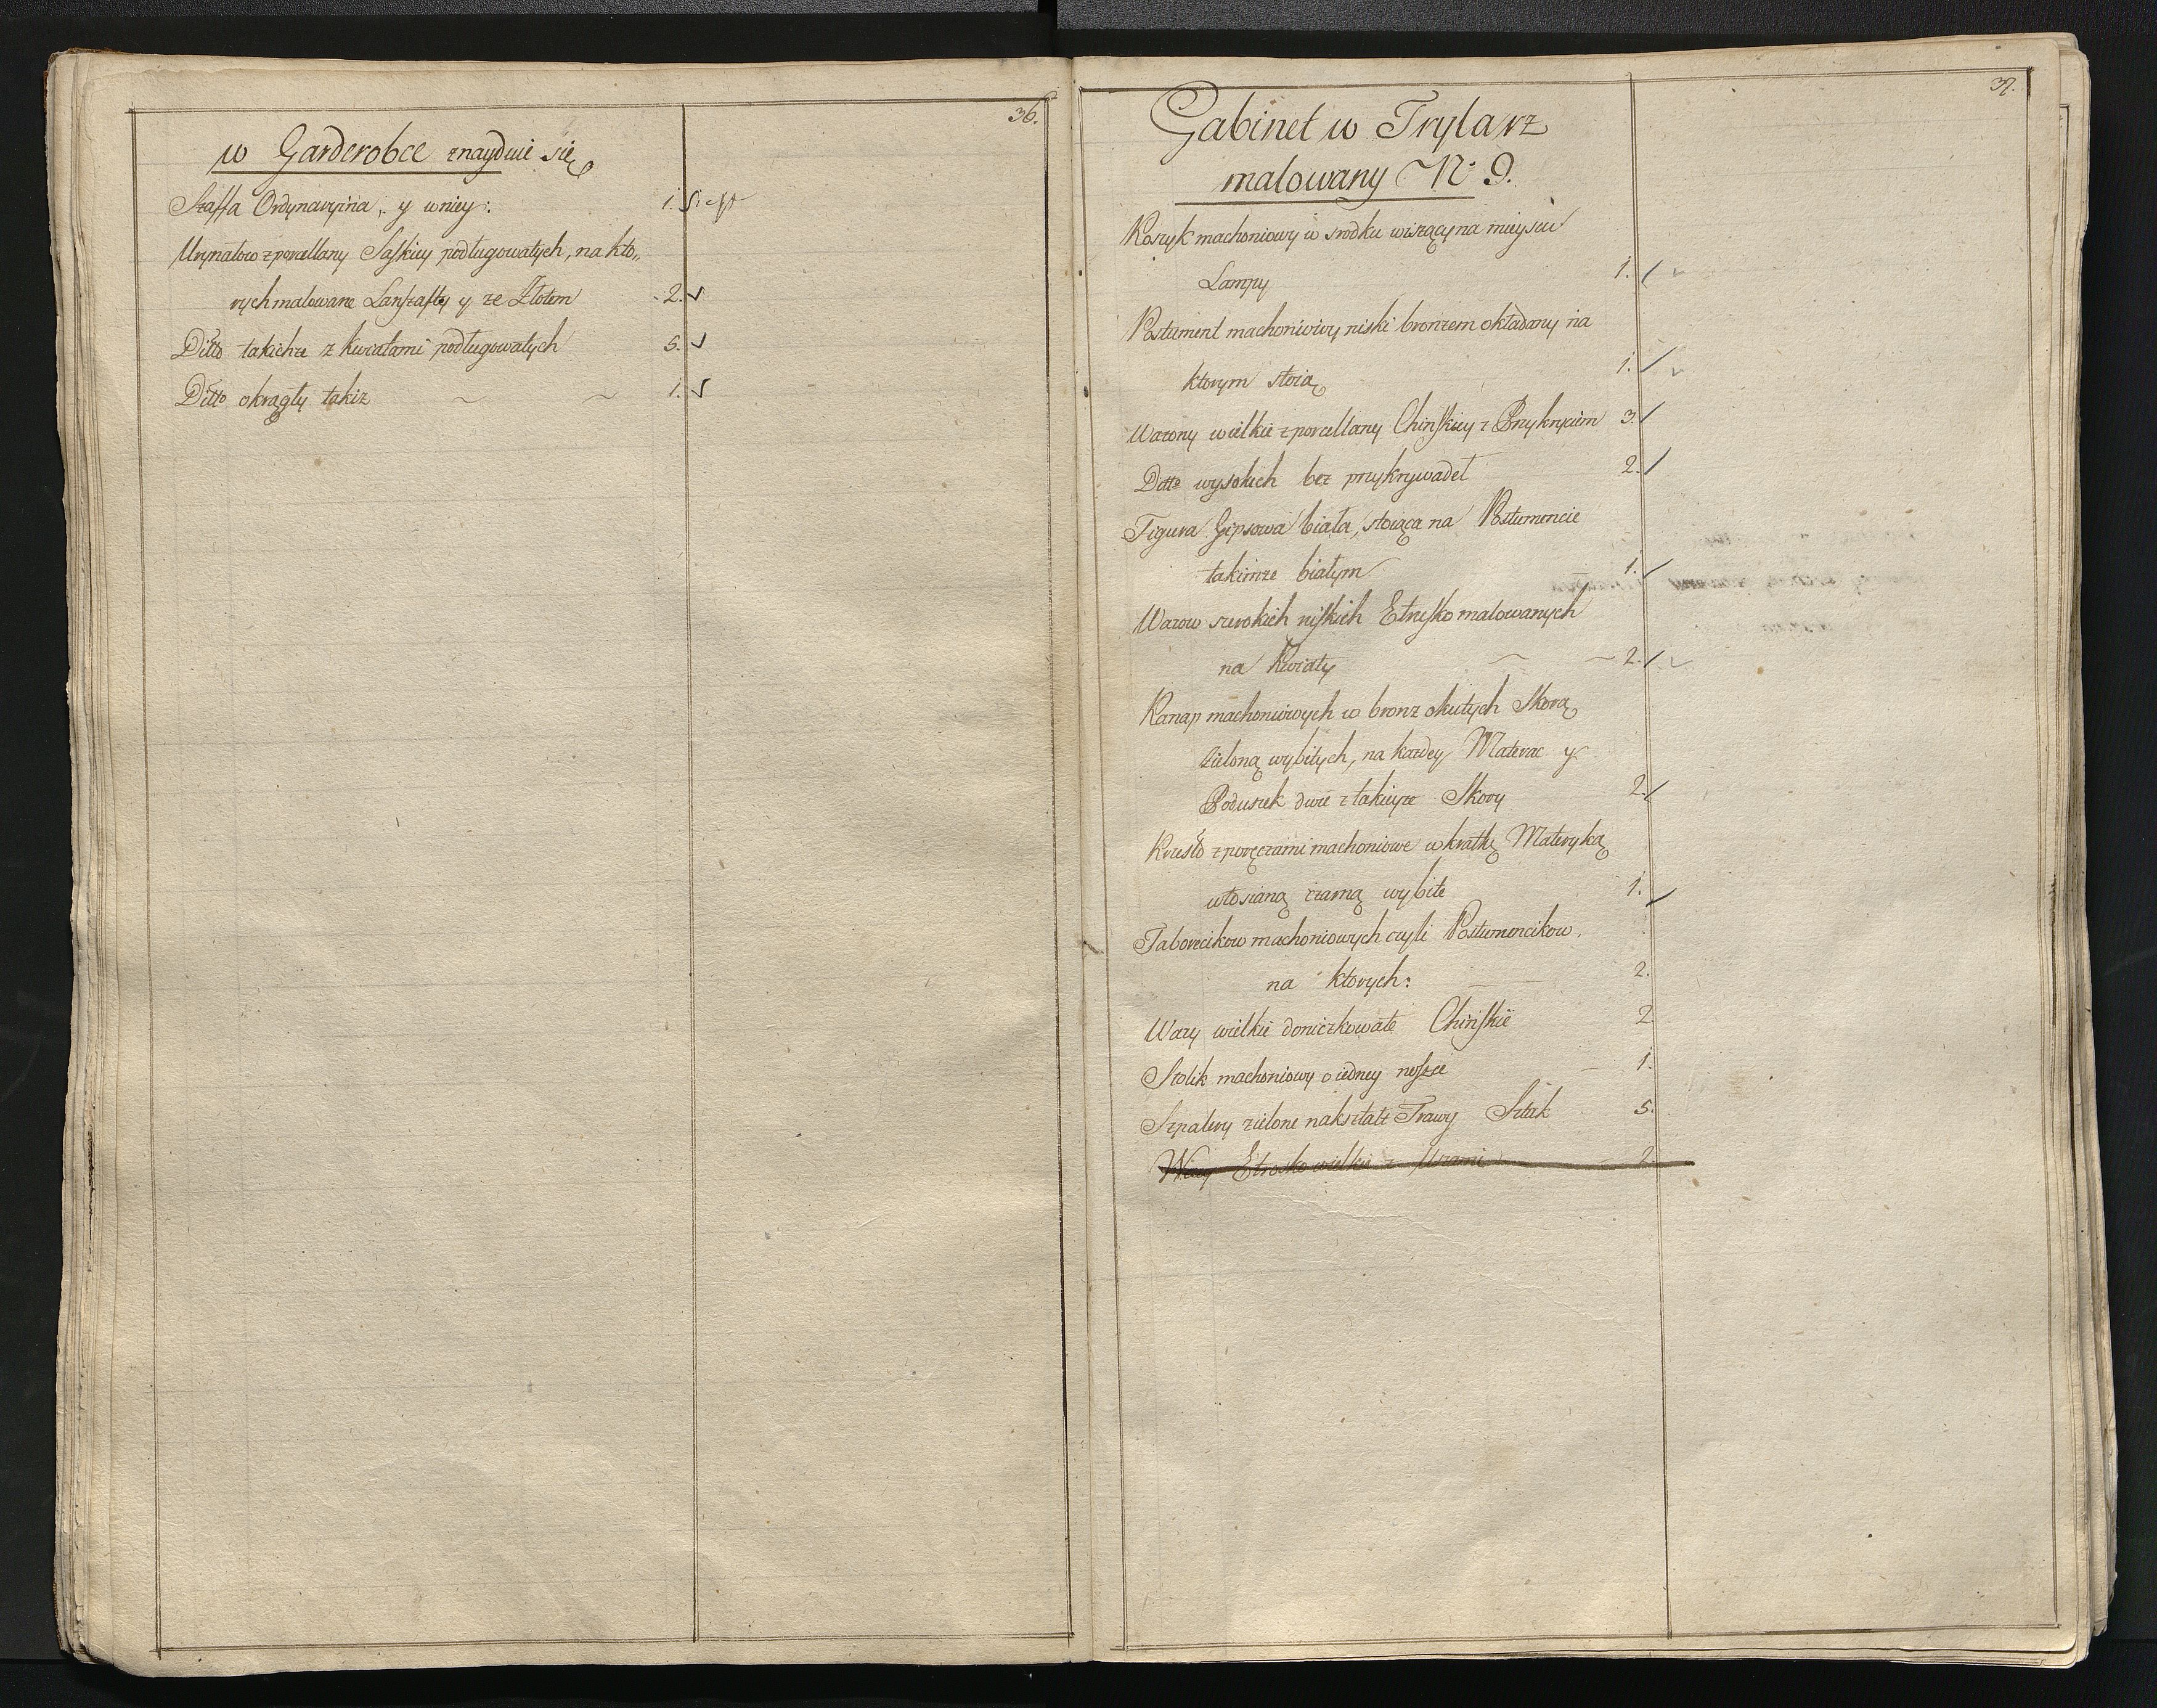 36.
w Garderobce znayduie się
Szaffa Ordynaryina, y w niey: 1.
Urynałow z porcellany Saskiey podługowatych, na kto„
rych malowane Lanszafty y ze Złotem 2.
Ditto takichże z kwiatami podługowatych 5.
Ditto okrągły takiż 1.
37.
Gabinet w Trylarz
malowany No 9.
Koszyk machoniowy w srodku wiszący na mieyscu
Lampy 1.
Postument machoniowy niski bronzem okładany na
ktorym stoią 1.
Wazony wielkie z porcellany Chinskiey z Przykryciem 3.
Ditto wysokich bez przykrywadeł 2.
Figura Gipsowa biała, stoiąca na Postumencie
takimże białym 1.
Wazow szerokich niskich Etrusko malowanych
na Kwiaty 2.
Kanap machoniowych w bronz okutych Skorą
zieloną wybitych, na każdey Materac y
Poduszek dwie z takieyże Skory 2.
Krzesło z poręczami machoniowe w kratkę Materyką
włosianą czarną wybite 1.
Taborecikow machoniowych czyli Postumencikow
na ktorych: 2.
Wazy wielkie doniczkowate Chińskie 2.
Stolik machoniowy o iedney noszce 1.
Szpalery zielone nakształt Trawy Sztuk 5.
Wazy Etrosko wielkie z Uszami 2.